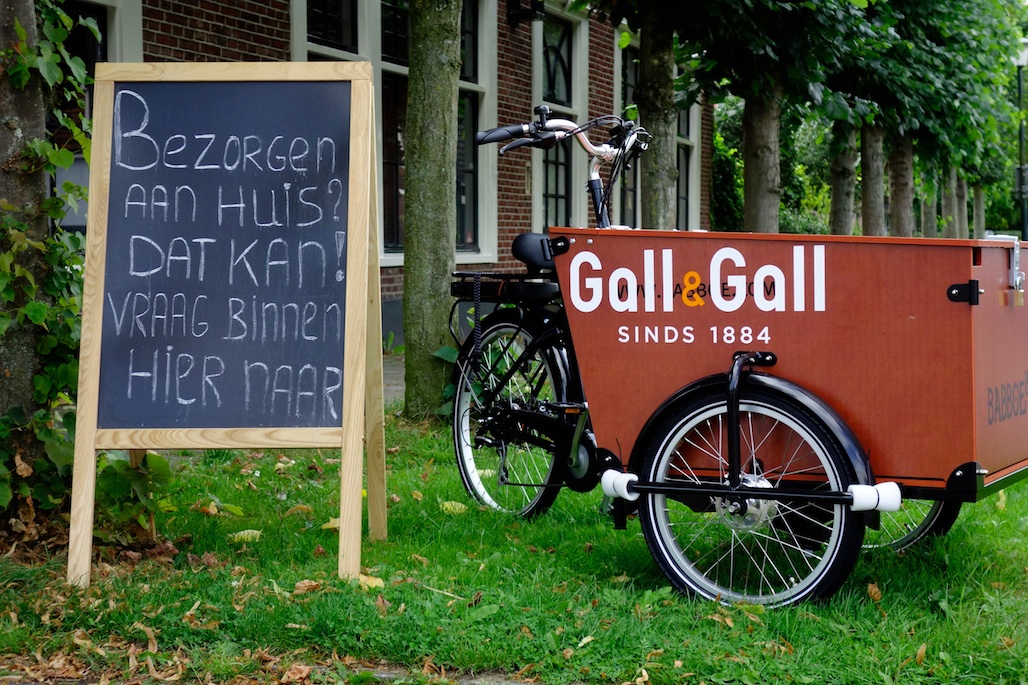 BEZORGEN
AAN HUIS?
DAT KAN!
VRAAG BINNEN
HIER NAAR
Gall & Gall
WWW.BABBOE.COM
SINDS 1884
BABBOE